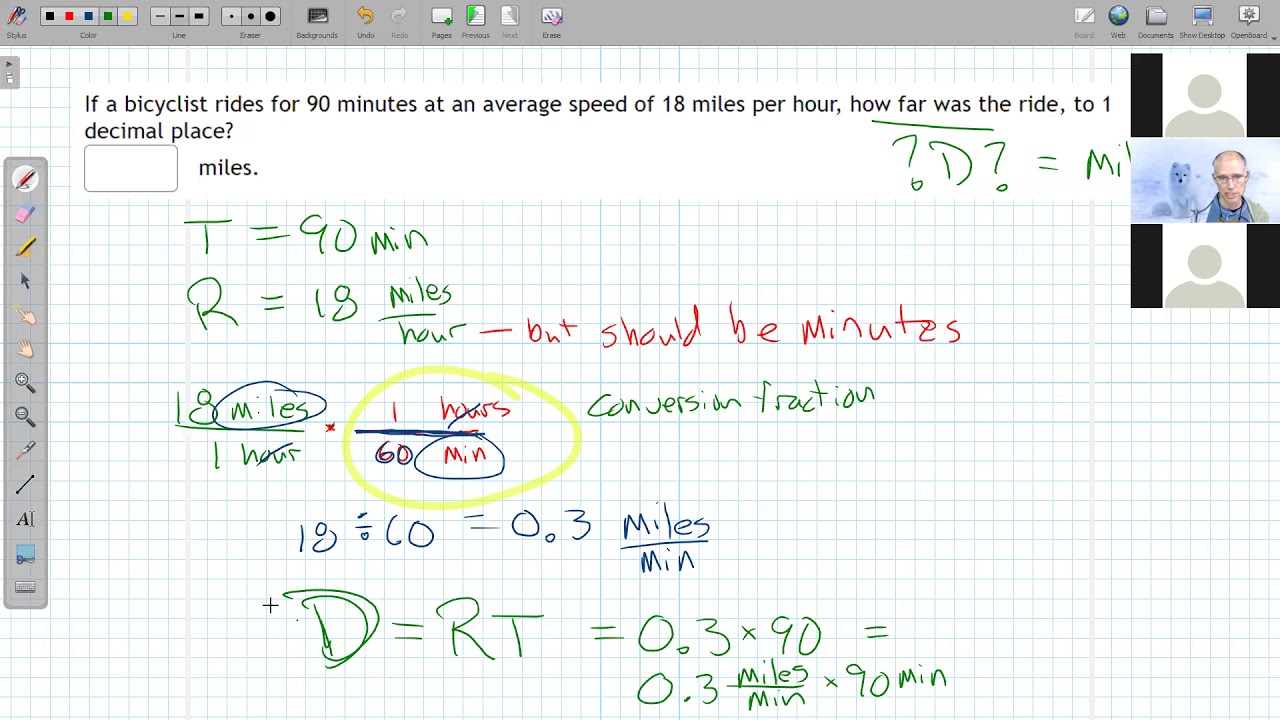 Stylus Color Line Eraser Backgrounds Undo Redo Pages Previous Next Erase Board Web Documents Show Desktop OpenBoard
If a bicyclist rides for 90 minutes at an average speed of 18 miles per hour, how far was the ride, to 1
decimal place?
miles.
? D ? = mil
T = 90 min
R = 18 miles
hour - but should be minutes
18 miles • 1 hours conversion fraction
1 hour 60 min
18 ÷ 60 = 0.3 miles
min
D = RT = 0.3 × 90 =
0.3 miles/min × 90 min